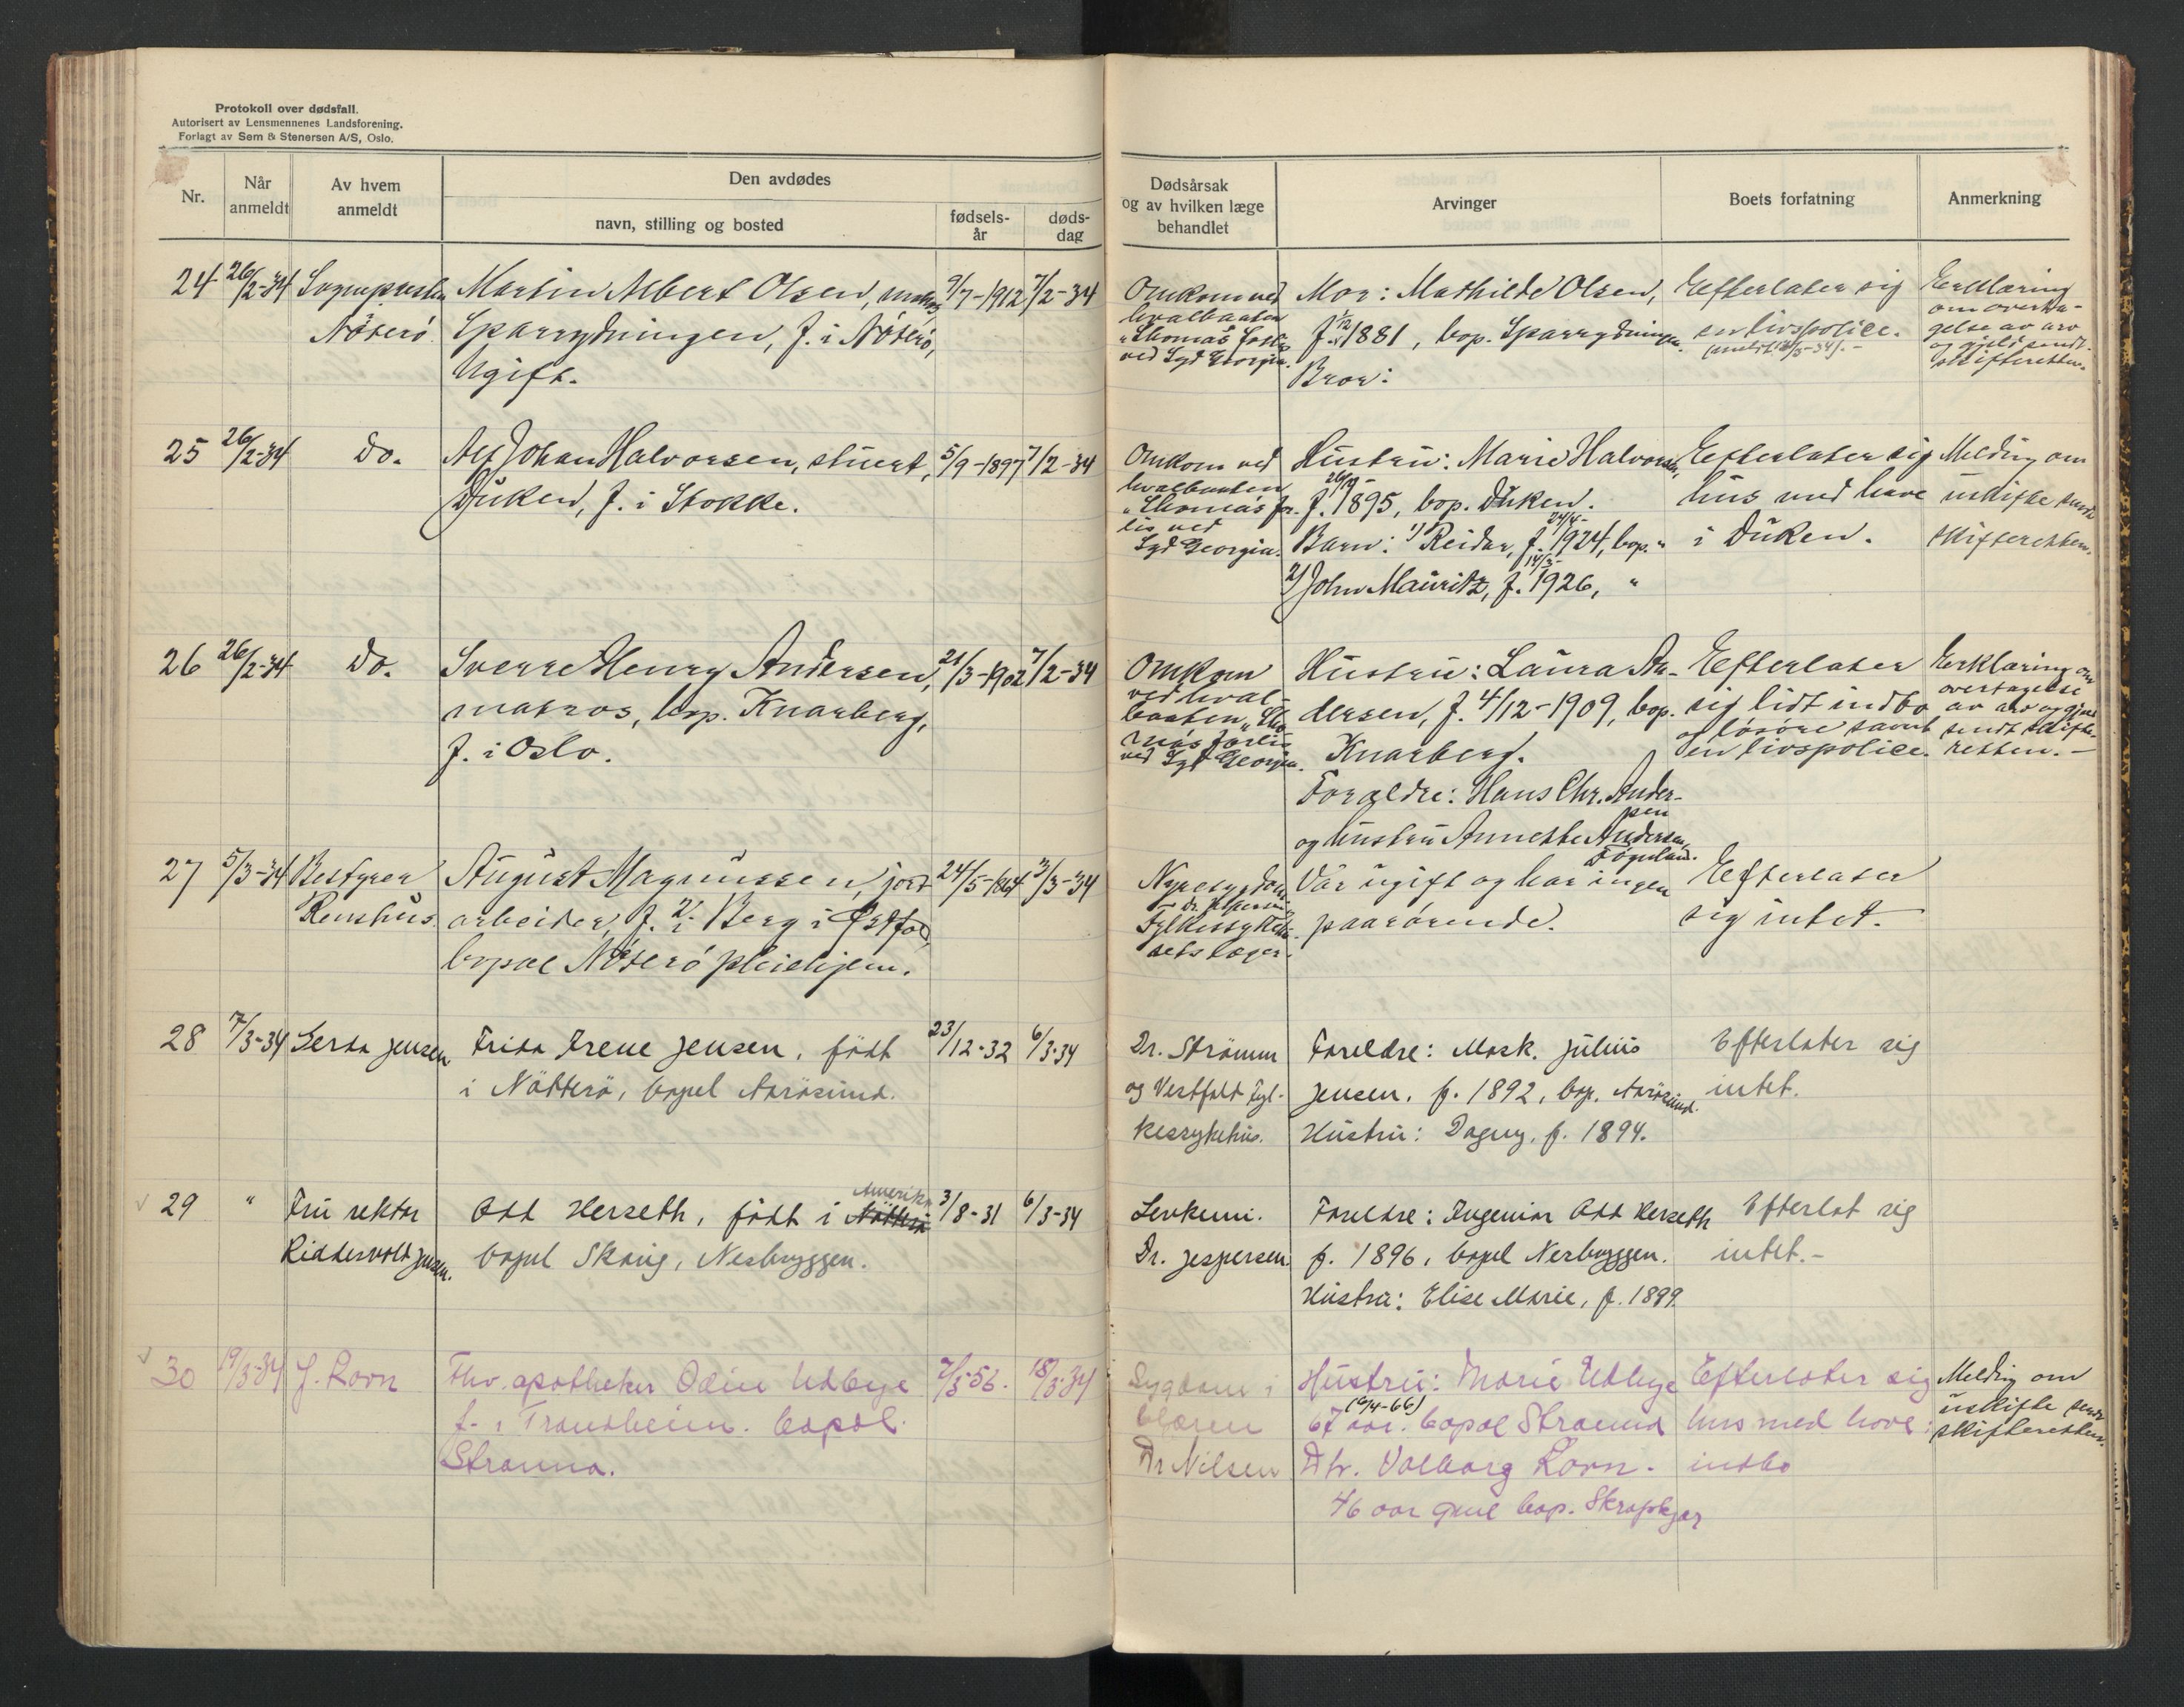 Protokoll over dødsfall.
Autorisert av Lensmennenes Landsforening.
Forlagt av Sem & Stenersen A/S, Oslo.
Nr.
Når
anmeldt
Av hvem
anmeldt
Den avdødes
navn, stilling og bosted
fødsels-
år
døds-
dag
Dødsårsak
og av hvilken læge
behandlet
Arvinger
Boets forfatning
Anmerkning
24
26/2-34
Sognepresten
Nøterø
Martin Albert Olsen,
Sparrydningen, f. i Nøterø,
Ugift.
9/7-1912
7/2-34
Omkom ved
hvalbaaten
„Thomas
ved Syd Georgia.
Mor: Mathilde Olsen,
f. 1881, bop. Sparrydningen.
Bror:
Efterlater sig
en livspolice.
Erklæring
om overta-
gelse av arv
og gjeld sendt
skifteretten.
25
26/2-34
Do.
Alf Johan Halvorsen, stuert,
Duken, f. i Stokke.
5/9-1897
7/2-34
Omkom ved
hvalbaaten
„Thomas for-
lis ved
Syd Georgia.
Hustru: Marie Halvorsen,
f. 1895, bop. Duken.
Barn: 1) Reidar, f. 24/4-1924, bop. "
2) John Mauritz, f. 14/3-1926, "
Efterlater sig
hus med have
i Duken.
Melding om
uskifte sendt
skifteretten.
26
26/2-34
Do.
Sverre Henry Andersen,
matros, bop. Knarberg,
f. i Oslo.
21/3-1902
7/2-34
Omkom
ved hval-
baaten „Tho
mas forlis
ved Syd Georgia.
Hustru: Laura An-
dersen, f. 4/12-1909, bop.
Knarberg.
Forældre: Hans Chr. Ander-
sen
og hustru Annette Andersen,
Efterlater
sig lidt indbo
og løsøre samt
en livspolice.
Erklæring om
overtagelse
av arv og gjeld
sendt skifte-
retten. -
27
5/3-34
Bestyrer
Renshus
August Magnussen, jord-
arbeider, f. i Berg i Østfold,
bopæl Nøterø pleiehjem.
24/5-1864
3/3-34
Nyresygdom
Dr. Jespersen,
Fylkessykehu-
sets læger.
Var ugift og har ingen
paarørende.
Efterlater
sig intet.
28
7/3-34
Gerda Jensen
Frida Irene Jensen, født
i Nøtterø, bopel Aarøsund.
23/12-32
6/3-34
Dr. Strømm
og Vestfold Fyl-
kessykehus.
Foreldre: Mask. Julius
Jensen, f. 1892, bop. Aarøsund.
Hustru: Dagny, f. 1894.
Efterlater sig
intet.
29
"
Fru rektor
Riddervold Jensen.
Odd Herseth, født i Nøtterø Amerika
bopel Skaug, Nesbryggen.
3/8-31
6/3-34
Levkemi.
Dr. Jespersen
Foreldre: Ingeniør Odd Herseth
f. 1896, bopel Nesbryggen.
Hustru: Elise Marie, f. 1899.
Efterlot sig
intet.-
30
19/3-34
J. Ravn
Fhv. apotheker Odin Udbye
f. i Trondheim. bopæl
Stranna.
7/5-56.
18/3-34
Sygdom i
blæren
Dr Nilsen
Hustru: Marie Udbye
(6/4-66)
67 aar. bopæl Stranna
Dtr. Valborg Ravn.
46 aar gml bop.
Efterlater sig
hus med have
indbo
Melding om
uskifte sendt
skifteretten.